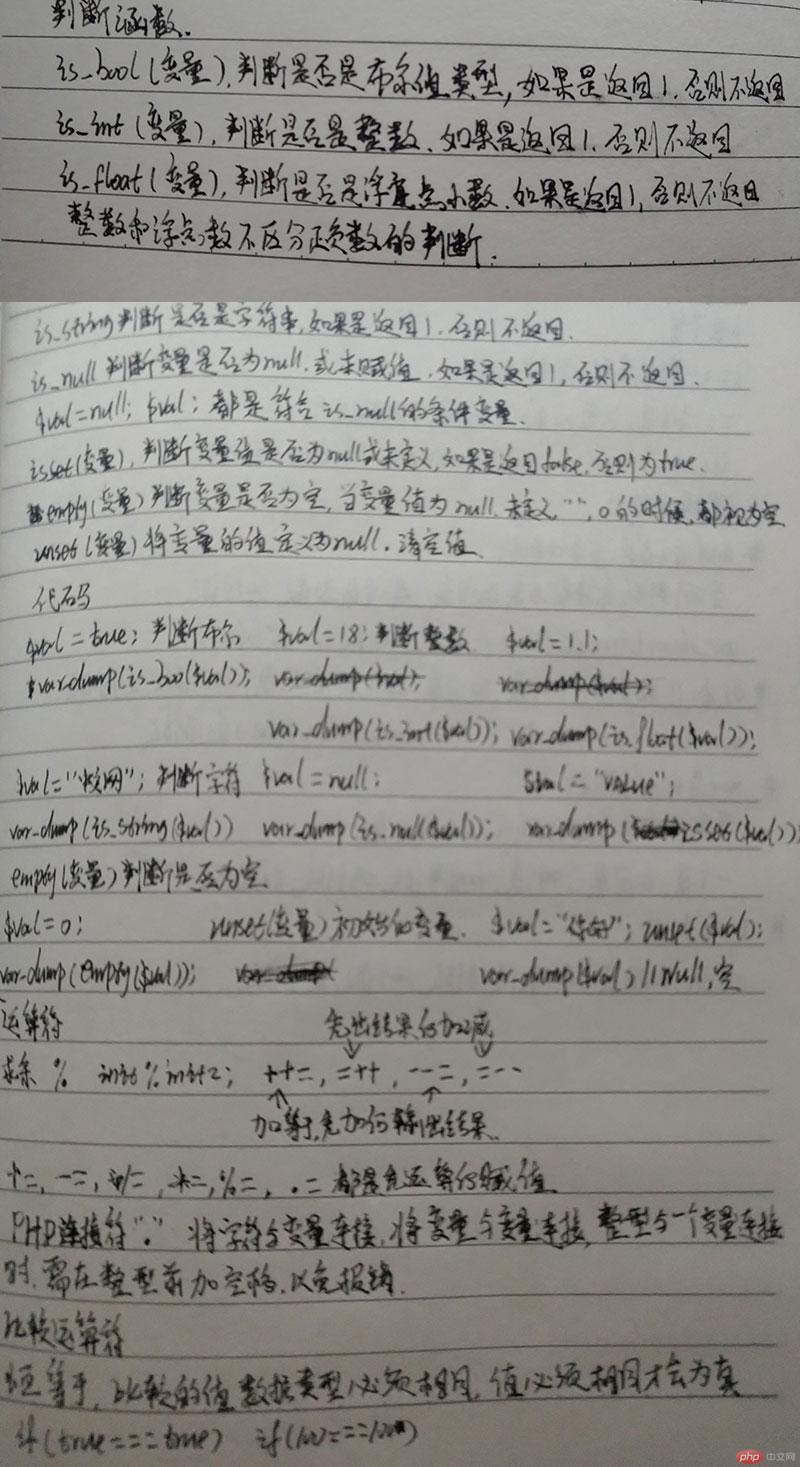 判断涵数.
is_bool(变量), 判断是否是布尔值类型, 如果是返回1, 否则不返回
is_int(变量), 判断是否是整数, 如果是返回1, 否则不返回
is_float(变量), 判断是否是浮点小数, 如果是返回1, 否则不返回
整数和浮点数不区分正负数的判断.
is_string判断是否是字符串, 如果是返回1, 否则不返回.
is_null 判断变量是否为null, 或未赋值, 如果是返回1, 否则不返回.
$val=null; $val; 都是符合 is_null的条件变量.
isset(变量), 判断变量值是否为null或未定义, 如果是返回false, 否则为true.
empty(变量)判断变量是否为空, 当变量值为 null, 未定义, "", 0的时候, 都视为空
unset(变量)将变量的值定义为null, 清空值
代码
$val=true; 判断布尔 $val=18; 判断整数 $val=1.1;
var_dump(is_bool($val)); var_dump($val); var_dump($val);
var_dump(is_int($val)); var_dump(is_float($val));
$val="网"; 判断字符 $val=null; $val="value";
var_dump(is_string($val)) var_dump(is_null($val)); var_dump(isset($val));
empty(变量)判断是否为空
$val=0; unset(变量)初始化变量. $val="你好"; unset($val);
var_dump(empty($val)); var_dump var_dump($val) //Null, 空
运算符 先出结果后加减
求余 % int%int2; ++=, =++, --=, =--
加等于, 先加后输出结果
+=, -=, /=, *=, %=, .= 都是先运算后赋值
PHP连接符"." 将字符与变量连接, 将变量与变量连接, 整型与一个变量连接
时, 需在整型前加空格, 以免报错.
比较运算符
恒等于, 比较的值数据类型必须相同, 值必须相同才会为真
if(true===true) if(100===100)
php 中文网